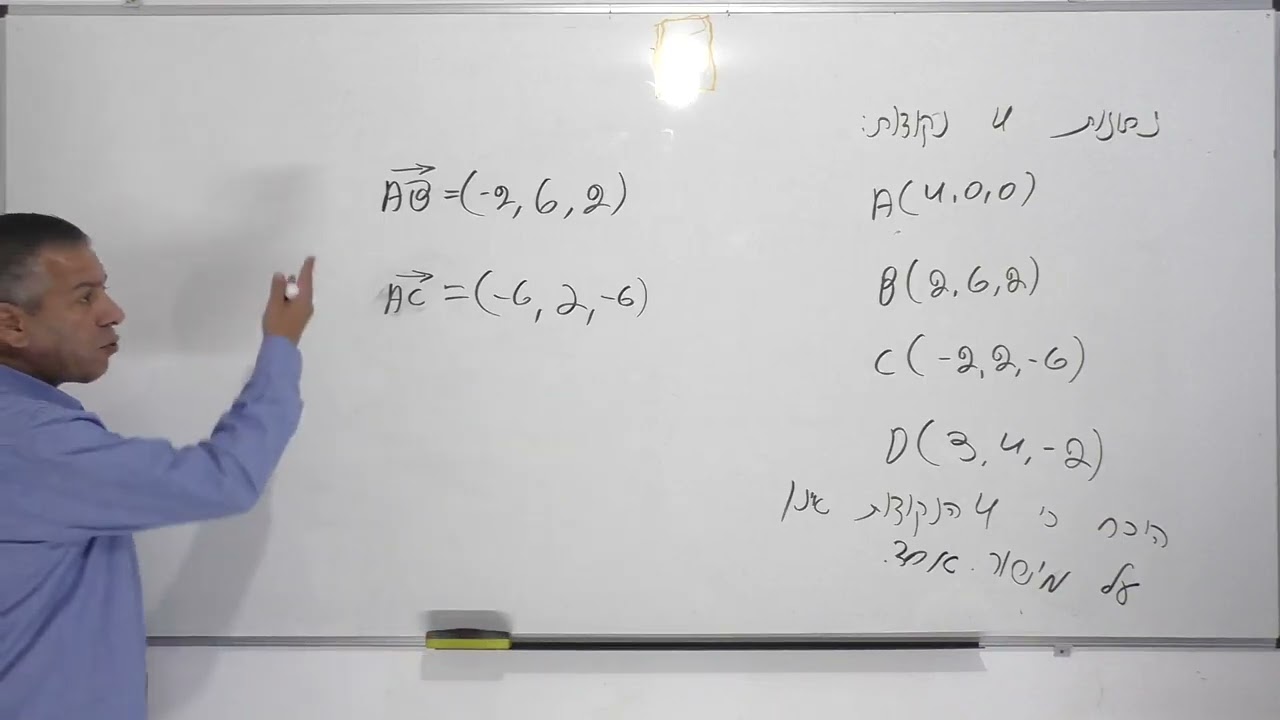 נתונות 4 נקודות:
A(4,0,0)
B(2,6,2)
C(-2,2,-6)
D(3,4,-2)
הוכח כי 4 הנקודות אינן
על מישור אחד.
AB=(-2,6,2)
AC=(-6,2,-6)